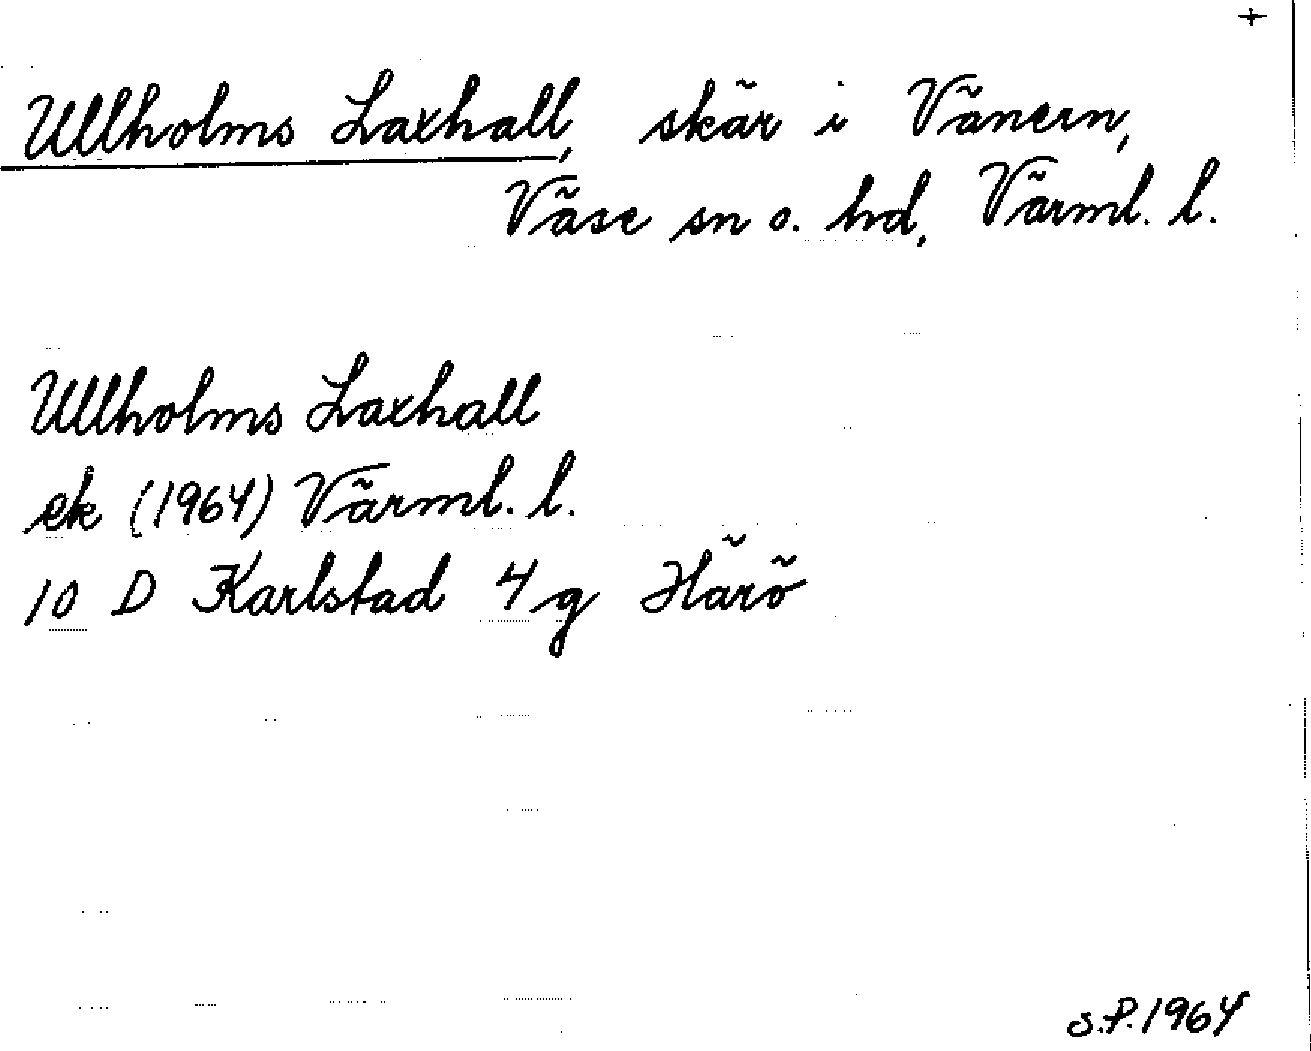 +
Ullholms Laxhall, skär i Vänern,
Väse sn o. hd, Värml. l.
Ullholms Laxhall
ek (1964) Värml. l.
10 D Karlstad 4 g Härö
S.P. 1964